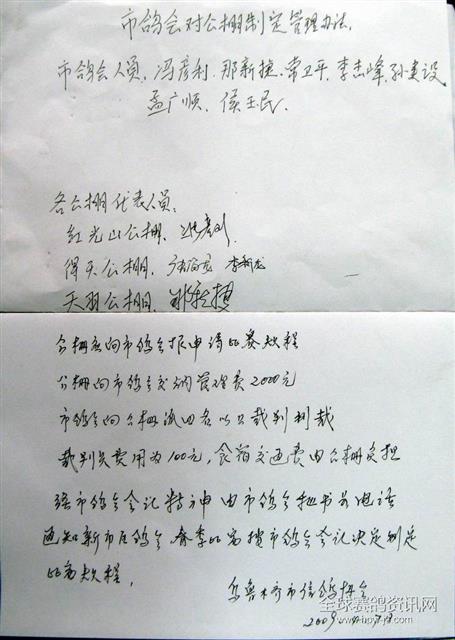 市鸽会对公棚制定管理办法.
市鸽会人员, 冯彦利, 那新捷, 常卫平, 李杰峰, 孙建设
孟广顺, 侯玉民.
各公棚代表人员.
红光山公棚.
得天公棚,
天羽公棚 那新捷
公棚应向市鸽会报申请比赛规程
公棚向市鸽会交纳管理费2000元
市鸽会向公棚派四名以上裁判
裁判员费用为100元, 食宿交通费由公棚负担
市鸽会会记精神由市鸽会秘书长电话
通知新市区鸽会, 春季比赛按市鸽会会记决定制定
比赛规程.
乌鲁木齐市信鸽协会
2009.
全球赛鸽资讯网